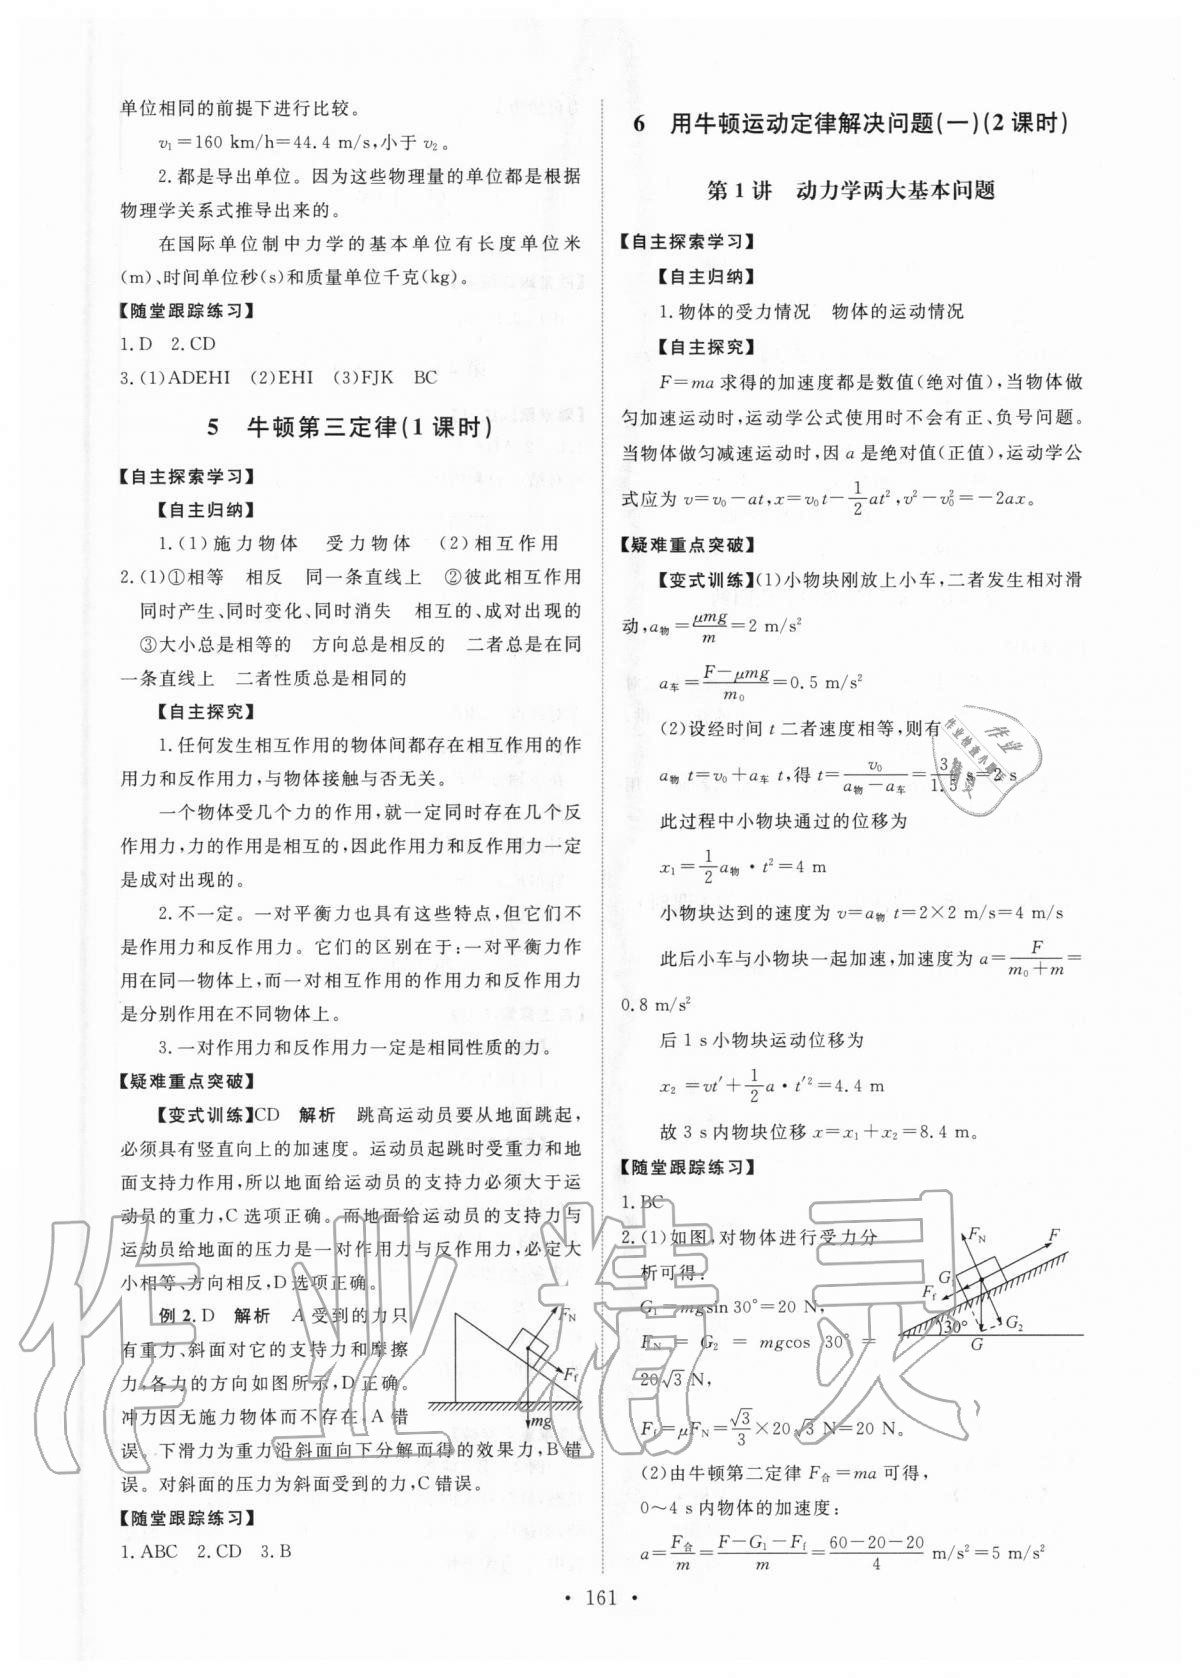 单位相同的前提下进行比较。
v₁=160 km/h=44.4 m/s,小于 v₂。
2. 都是导出单位。因为这些物理量的单位都是根据
物理学关系式推导出来的。
在国际单位制中力学的基本单位有长度单位米
(m)、时间单位秒(s)和质量单位千克(kg)。
【随堂跟踪练习】
1. D 2. CD
3. (1)ADEHI (2)EHI (3)FJK BC
5 牛顿第三定律(1 课时)
【自主探索学习】
【自主归纳】
1. (1)施力物体 受力物体 (2)相互作用
2. (1)①相等 相反 同一条直线上 ②彼此相互作用
同时产生、同时变化、同时消失 相互的、成对出现的
③大小总是相等的 方向总是相反的 二者总是在同
一条直线上 二者性质总是相同的
【自主探究】
1. 任何发生相互作用的物体间都存在相互作用的作
用力和反作用力,与物体接触与否无关。
一个物体受几个力的作用,就一定同时存在几个反
作用力,力的作用是相互的,因此作用力和反作用力一定
是成对出现的。
2. 不一定。一对平衡力也具有这些特点,但它们不
是作用力和反作用力。它们的区别在于:一对平衡力作
用在同一物体上,而一对相互作用的作用力和反作用力
是分别作用在不同物体上。
3. 一对作用力和反作用力一定是相同性质的力。
【疑难重点突破】
【变式训练】CD 解析 跳高运动员要从地面跳起,
必须具有竖直向上的加速度。运动员起跳时受重力和地
面支持力作用,所以地面给运动员的支持力必须大于运
动员的重力,C 选项正确。而地面给运动员的支持力与
运动员给地面的压力是一对作用力与反作用力,必定大
小相等、方向相反,D 选项正确。
例 2. D 解析 A 受到的力只
有重力、斜面对它的支持力和摩擦
力,各力的方向如图所示,D 正确。
冲力因无施力物体而不存在,A 错
误。下滑力为重力沿斜面向下分解而得的效果力,B 错
误。对斜面的压力为斜面受到的力,C 错误。
F_N
F_f
mg
【随堂跟踪练习】
1. ABC 2. CD 3. B
6 用牛顿运动定律解决问题(一)(2 课时)
第 1 讲 动力学两大基本问题
【自主探索学习】
【自主归纳】
1. 物体的受力情况 物体的运动情况
【自主探究】
F=ma 求得的加速度都是数值(绝对值),当物体做
匀加速运动时,运动学公式使用时不会有正、负号问题。
当物体做匀减速运动时,因 a 是绝对值(正值),运动学公
式应为 v=v₀-at,x=v₀t-1/2 at²,v²-v₀²=-2ax。
【疑难重点突破】
【变式训练】(1)小物块刚放上小车,二者发生相对滑
动,a物=μmg/m=2 m/s²
a车=(F-μmg)/m₀=0.5 m/s²
(2)设经时间 t 二者速度相等,则有
a物 t=v₀+a车 t,得 t=v₀/(a物-a车)=3/1.5 s=2 s
此过程中小物块通过的位移为
x₁=1/2 a物·t²=4 m
小物块达到的速度为 v=a物 t=2×2 m/s=4 m/s
此后小车与小物块一起加速,加速度为 a=F/(m₀+m)=
0.8 m/s²
后 1 s 小物块运动位移为
x₂=vt′+1/2 a·t′²=4.4 m
故 3 s 内物块位移 x=x₁+x₂=8.4 m。
【随堂跟踪练习】
1. BC
2. (1)如图,对物体进行受力分
析可得:
G₁=mgsin 30°=20 N,
F_N=G₂=mgcos 30°=
20√3 N,
F_f=μF_N=√3/3×20√3 N=20 N。
F_N
F
G₁
F_f
30°
G₂
G
(2)由牛顿第二定律 F合=ma 可得,
0~4 s 内物体的加速度:
a=F合/m=(F-G₁-F_f)/m=(60-20-20)/4 m/s²=5 m/s²
· 161 ·
作业精灵
作业
作业检查小帮手
精灵